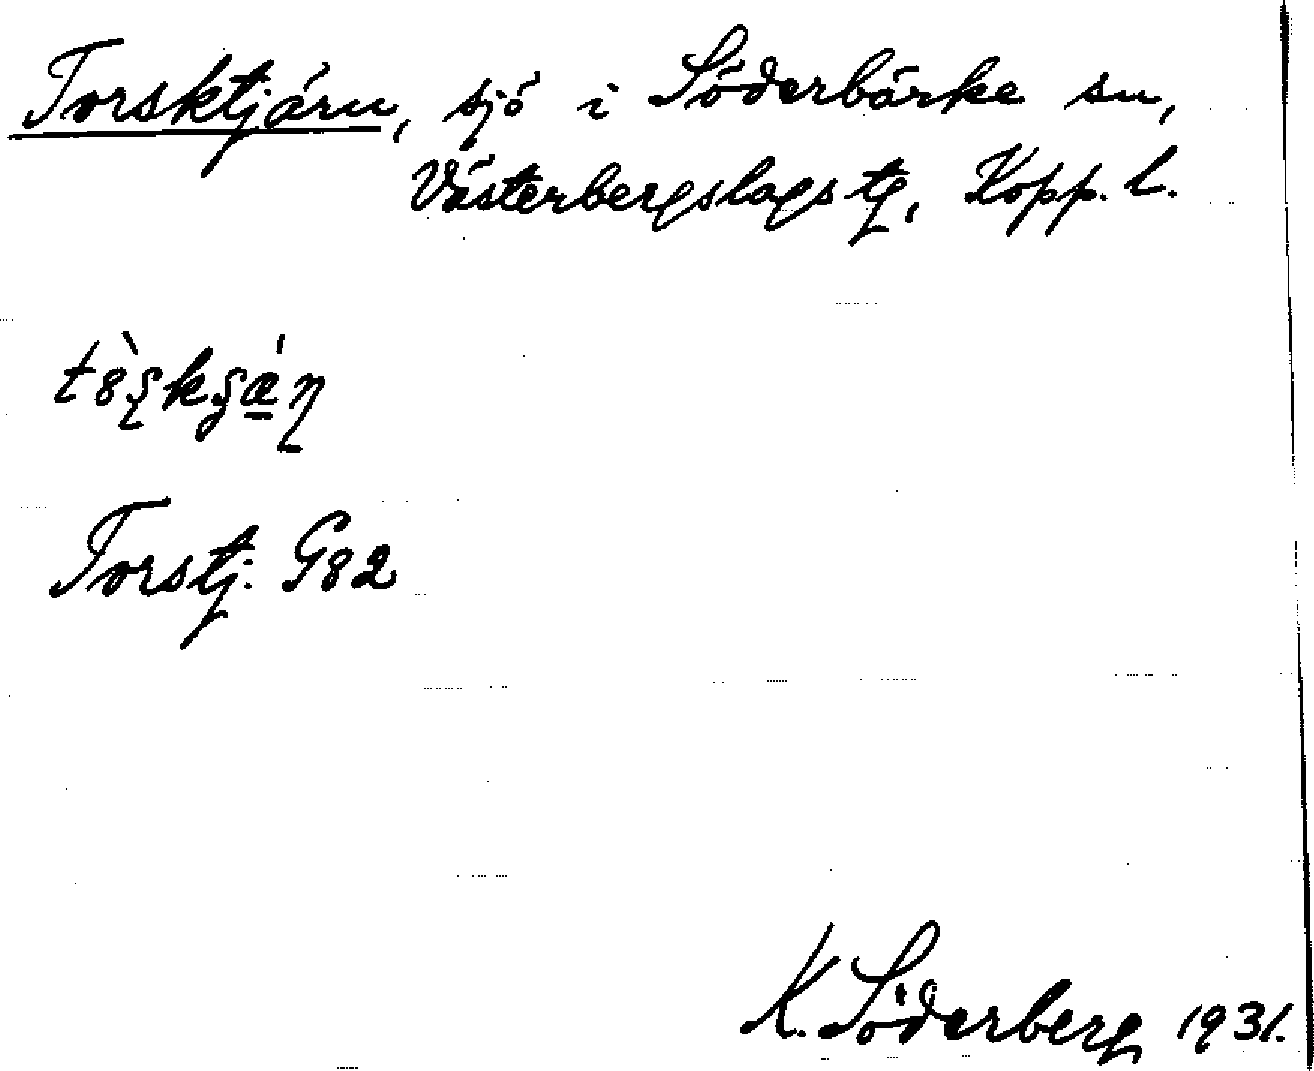 Torsktjärn, sjö i Söderbärke sn,
Västerbergslags tg, Kopp. l.
Torstj. G82
K. Söderberg 1931.